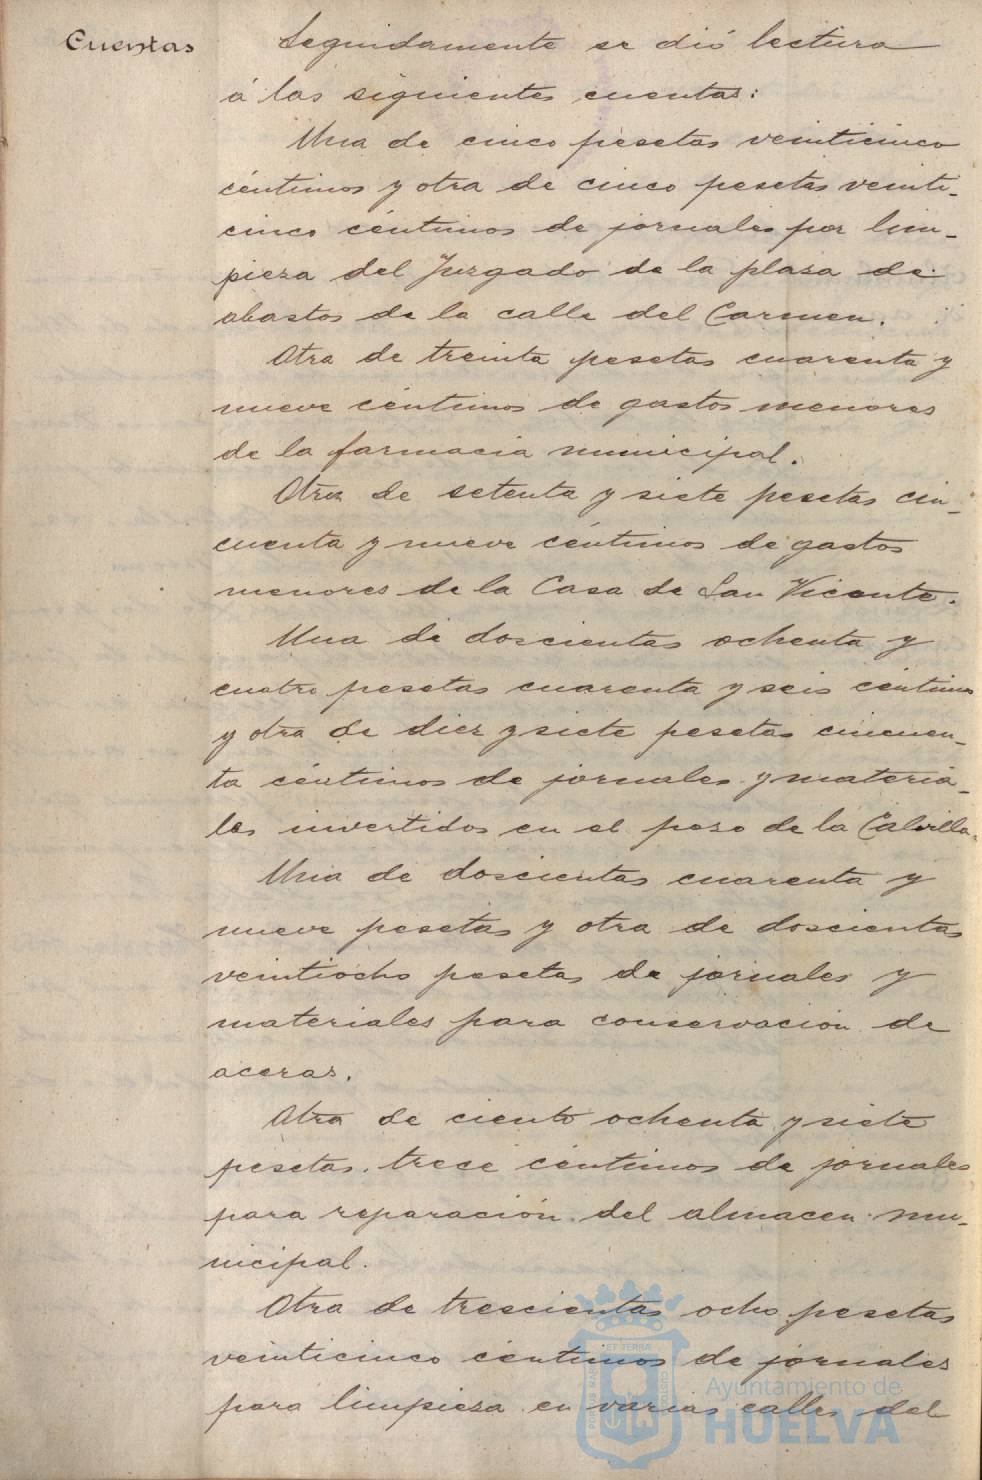 Cuentas
Seguidamente se dió lectura
á las siguientes cuentas:
Una de cinco pesetas veinticinco
céntimos y otra de cinco pesetas veinti-
cinco céntimos de jornales por lim-
pieza del Juzgado de la plaza de
abastos de la calle del Carmen.
Otra de treinta pesetas cuarenta y
nueve céntimos de gastos menores
de la farmacia municipal.
Otra de setenta y siete pesetas cin-
cuenta y nueve céntimos de gastos
menores de la Casa de San Vicente.
Una de doscientas ochenta y
cuatro pesetas cuarenta y seis céntimos
y otra de diez y siete pesetas cincuen-
ta céntimos de jornales y materia-
les invertidos en el pozo de la Calvilla.
Una de doscientas cuarenta y
nueve pesetas y otra de doscientas
veintiocho pesetas de jornales y
materiales para conservacion de
aceras.
Otra de ciento ochenta y siete
pesetas trece céntimos de jornales
para reparación del almacen mu-
nicipal.
Otra de trescientas ocho pesetas
veinticinco céntimos de jornales
para limpieza en varias calles del
PORTUS MARIS ET TERRAE CUSTODIA
Ayuntamiento de
HUELVA